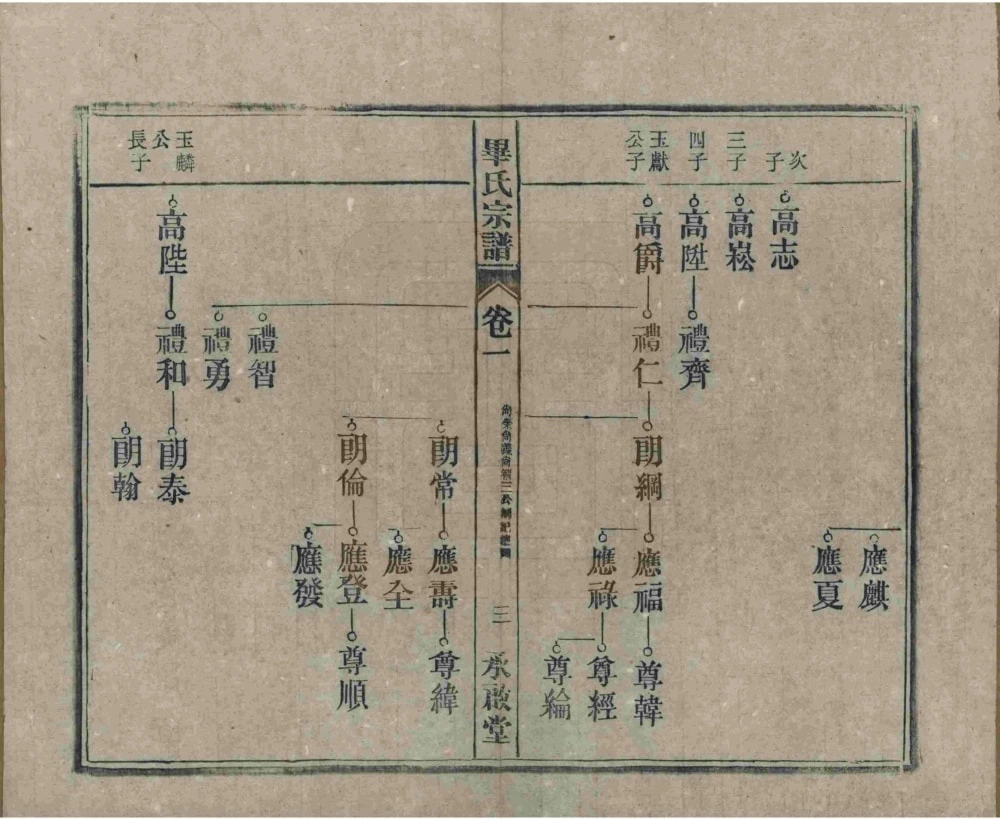 次子
三子
四子
玉獻公子
高志
高崧
高陞
高爵
禮齊
禮仁
朗綱
應麒
應夏
應福
應祿
尊韓
尊經
尊綸
畢氏宗譜
卷一
三
承啟堂
玉麟公長子
高陛
禮智
禮勇
禮和
朗常
朗倫
朗泰
朗翰
應壽
應全
應登
應發
尊緯
尊順